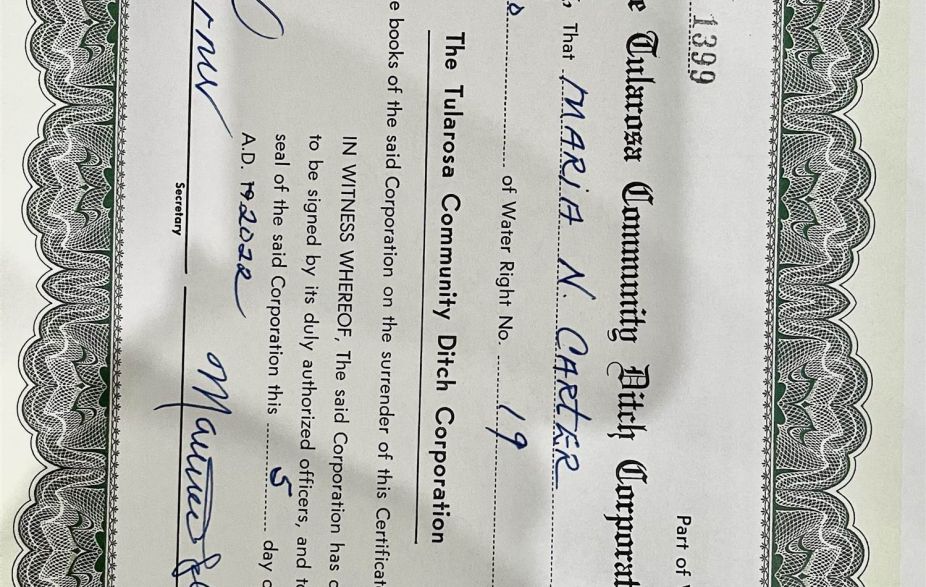 1399
Part of
e Tularosa Community Ditch Corporat
, That MARIA N. CARTER
of Water Right No. 19
The Tularosa Community Ditch Corporation
e books of the said Corporation on the surrender of this Certificat
IN WITNESS WHEREOF, The said Corporation has c
to be signed by its duly authorized officers, and t
seal of the said Corporation this 5 day o
A.D. 19 2022
Secretary